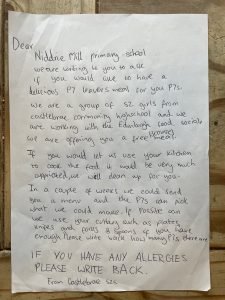 Dear
Niddrie Mill primary school
we are writing to you to ask
if you would like to have a
delicious P7 leavers meal for you P7s.
We are a group of S2 girls from
castlebrae community highschool and we
are working with the Edinburgh food social,
we are offering you a free leavers meal.
If you would let us use your kitchen
to cook the food it would be very much
appriciated, we will clean up for you.
In a couple of weeks we could send
you a menu and the P7s can pick
what we could make. If possible can
we use your cutlery such as plates,
knifes and forks & spoons if you have
enough. Please write back how many P7s there are
IF YOU HAVE ANY ALLERGIES
PLEASE WRITE BACK.
From Castlebrae S2s